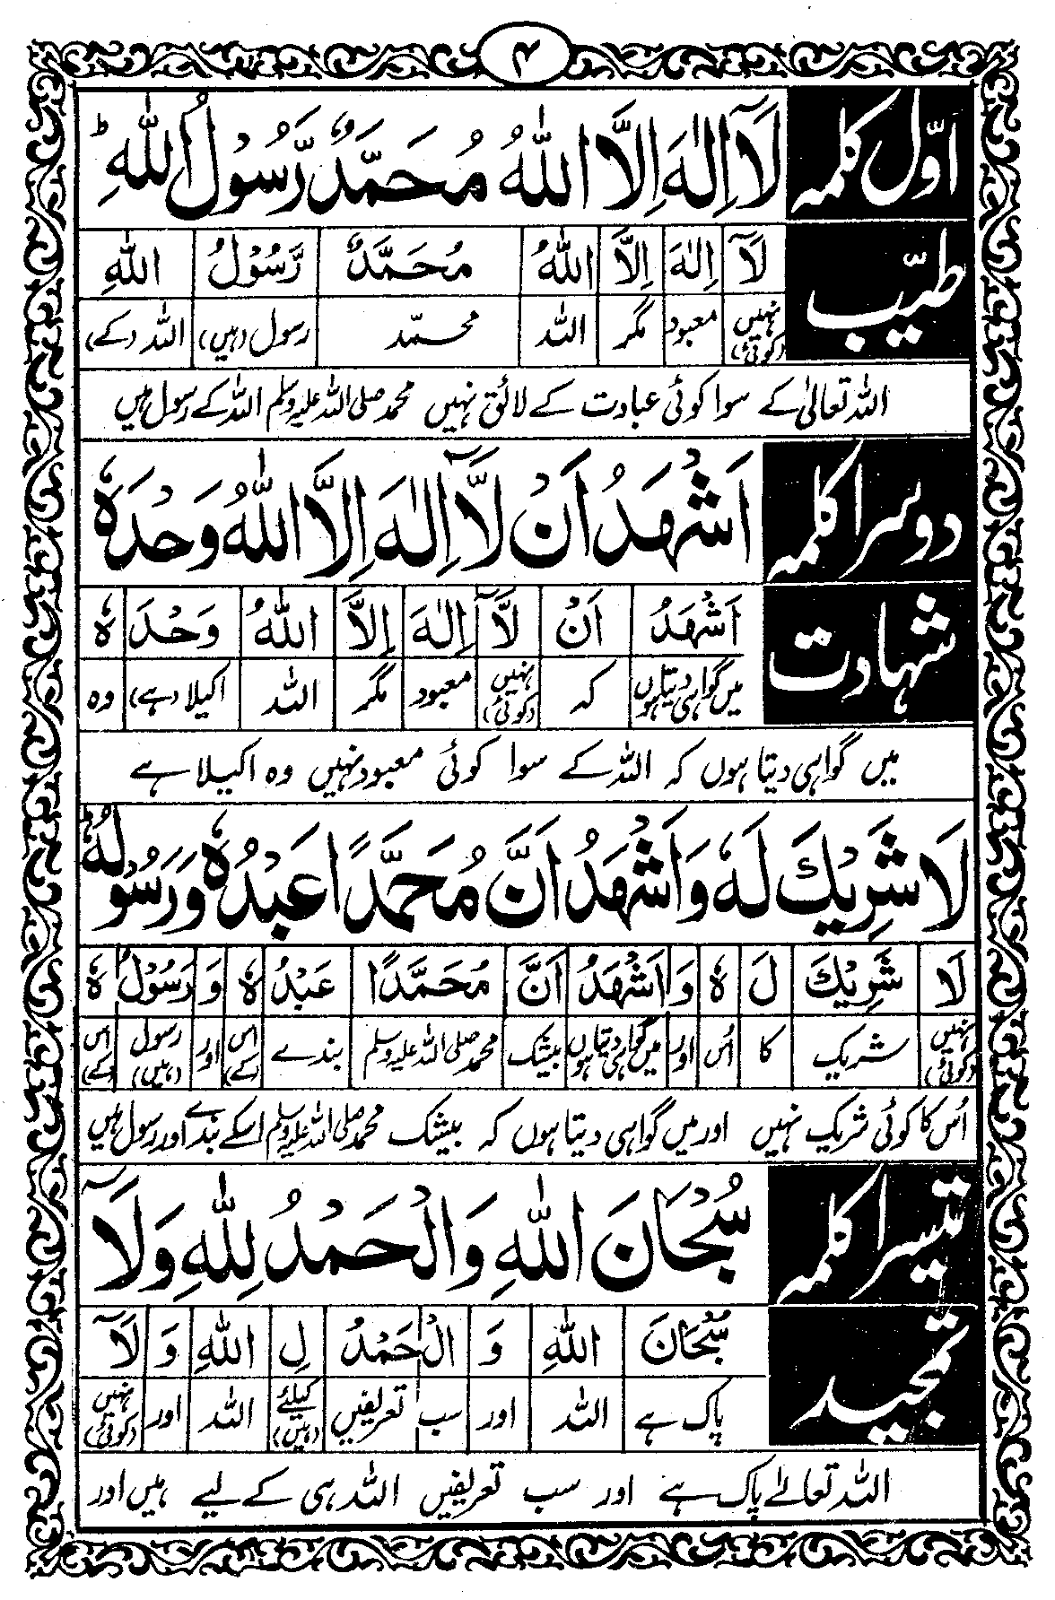 ۴
اوّل کلمہ
لَآ اِلٰهَ اِلَّا اللّٰهُ مُحَمَّدٌ رَّسُوْلُ اللّٰهِ ؕ
طیّب
لَآ اِلٰهَ اِلَّا اللّٰهُ مُحَمَّدٌ رَّسُوْلُ اللّٰهِ
نہیں (کوئی) معبود مگر اللہ محمّد رسول (ہیں) اللہ (کے)
اللہ تعالیٰ کے سوا کوئی عبادت کے لائق نہیں محمد صلی اللہ علیہ وسلم اللہ کے رسول ہیں
دوسرا کلمہ
اَشْهَدُ اَنْ لَّآ اِلٰهَ اِلَّا اللّٰهُ وَحْدَهٗ
شہادت
اَشْهَدُ اَنْ لَّآ اِلٰهَ اِلَّا اللّٰهُ وَحْدَ هٗ
میں گواہی دیتا ہوں کہ نہیں (کوئی) معبود مگر اللہ اکیلا (ہے) وہ
میں گواہی دیتا ہوں کہ اللہ کے سوا کوئی معبود نہیں وہ اکیلا ہے
لَا شَرِيْكَ لَهٗ وَاَشْهَدُ اَنَّ مُحَمَّدًا عَبْدُهٗ وَرَسُوْلُهٗ ؕ
لَا شَرِيْكَ لَ هٗ وَ اَشْهَدُ اَنَّ مُحَمَّدًا عَبْدُ هٗ وَ رَسُوْلُ هٗ
نہیں (کوئی) شریک کا اُس اور میں گواہی دیتا ہوں بیشک محمد صلی اللہ علیہ وسلم بندے (اس کے) اور رسول (ہیں) اس کے
اُس کا کوئی شریک نہیں اور میں گواہی دیتا ہوں کہ بیشک محمد صلی اللہ علیہ وسلم اسکے بندے اور رسول ہیں
تیسرا کلمہ
سُبْحَانَ اللّٰهِ وَالْحَمْدُ لِلّٰهِ وَلَآ
تمجید
سُبْحَانَ اللّٰهِ وَ الْحَمْدُ لِ اللّٰهِ وَ لَآ
پاک ہے اللہ اور سب تعریفیں کیلئے (ہیں) اللہ اور نہیں (کوئی)
اللہ تعالےٰ پاک ہے اور سب تعریفیں اللہ ہی کے لیے ہیں اور